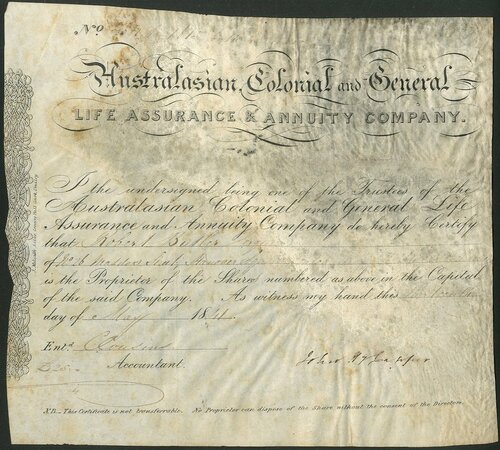 No.
Australasian, Colonial and General
LIFE ASSURANCE & ANNUITY COMPANY.
I the undersigned being one of the Trustees of the
Australasian Colonial and General Life
Assurance and Annuity Company do hereby Certify
that Robert
of No. 6
is the Proprietor of the Share numbered as above in the Capital
of the said Company. As witness my hand this
day of May 1841
Entd. Accountant.
John
N.B. — This Certificate is not transferrable. No Proprietor can dispose of the Share without the consent of the Directors.